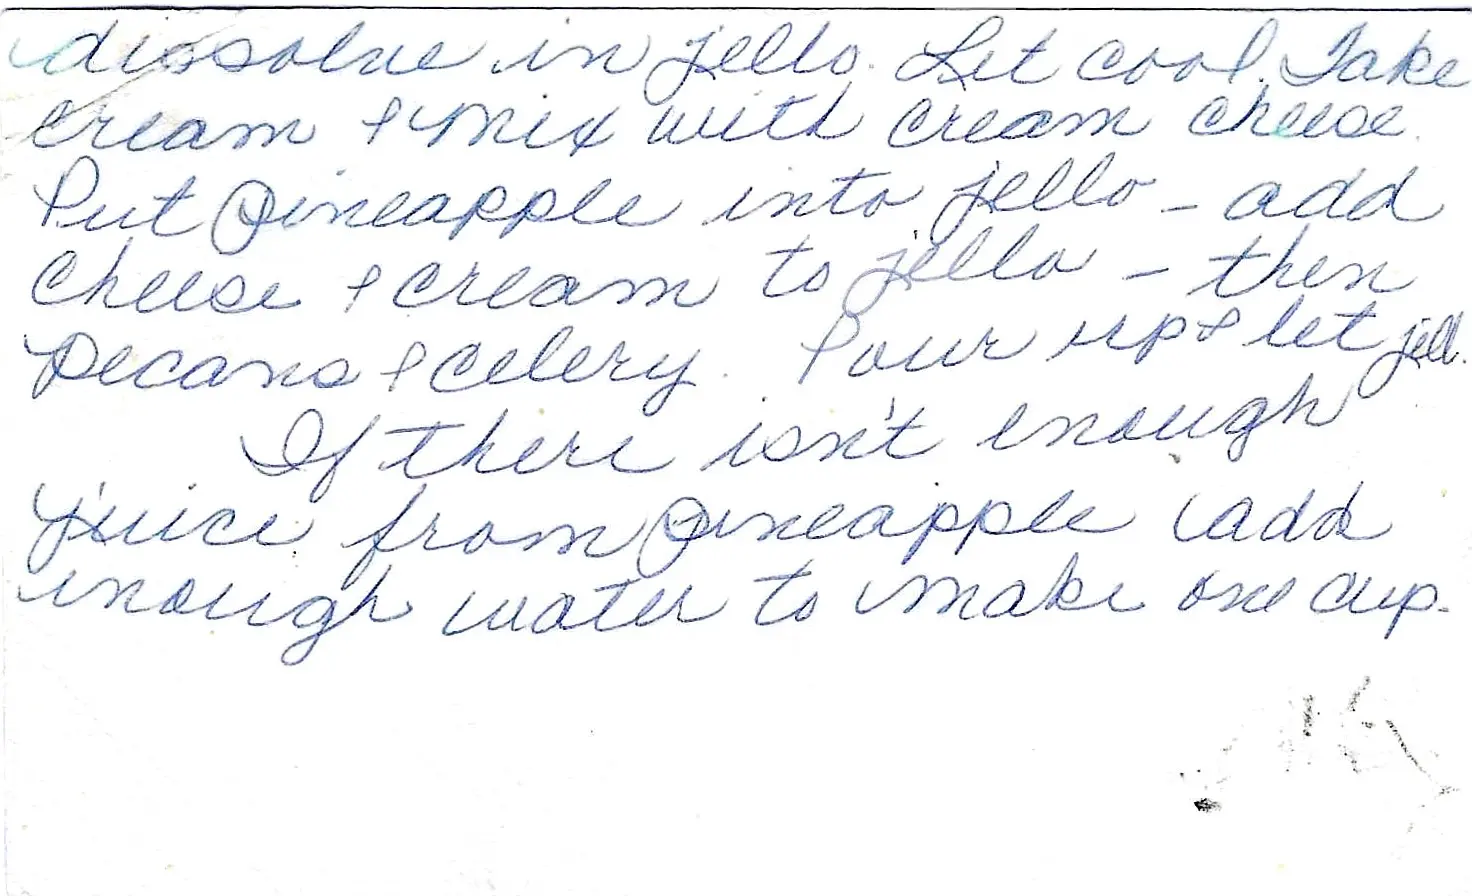 dissolve in jello. Let cool. Take
cream & mix with cream cheese.
Put pineapple into jello - add
cheese & cream to jello - then
pecans & celery. Pour up & let jell.
If there isn't enough
juice from pineapple add
enough water to make one cup.